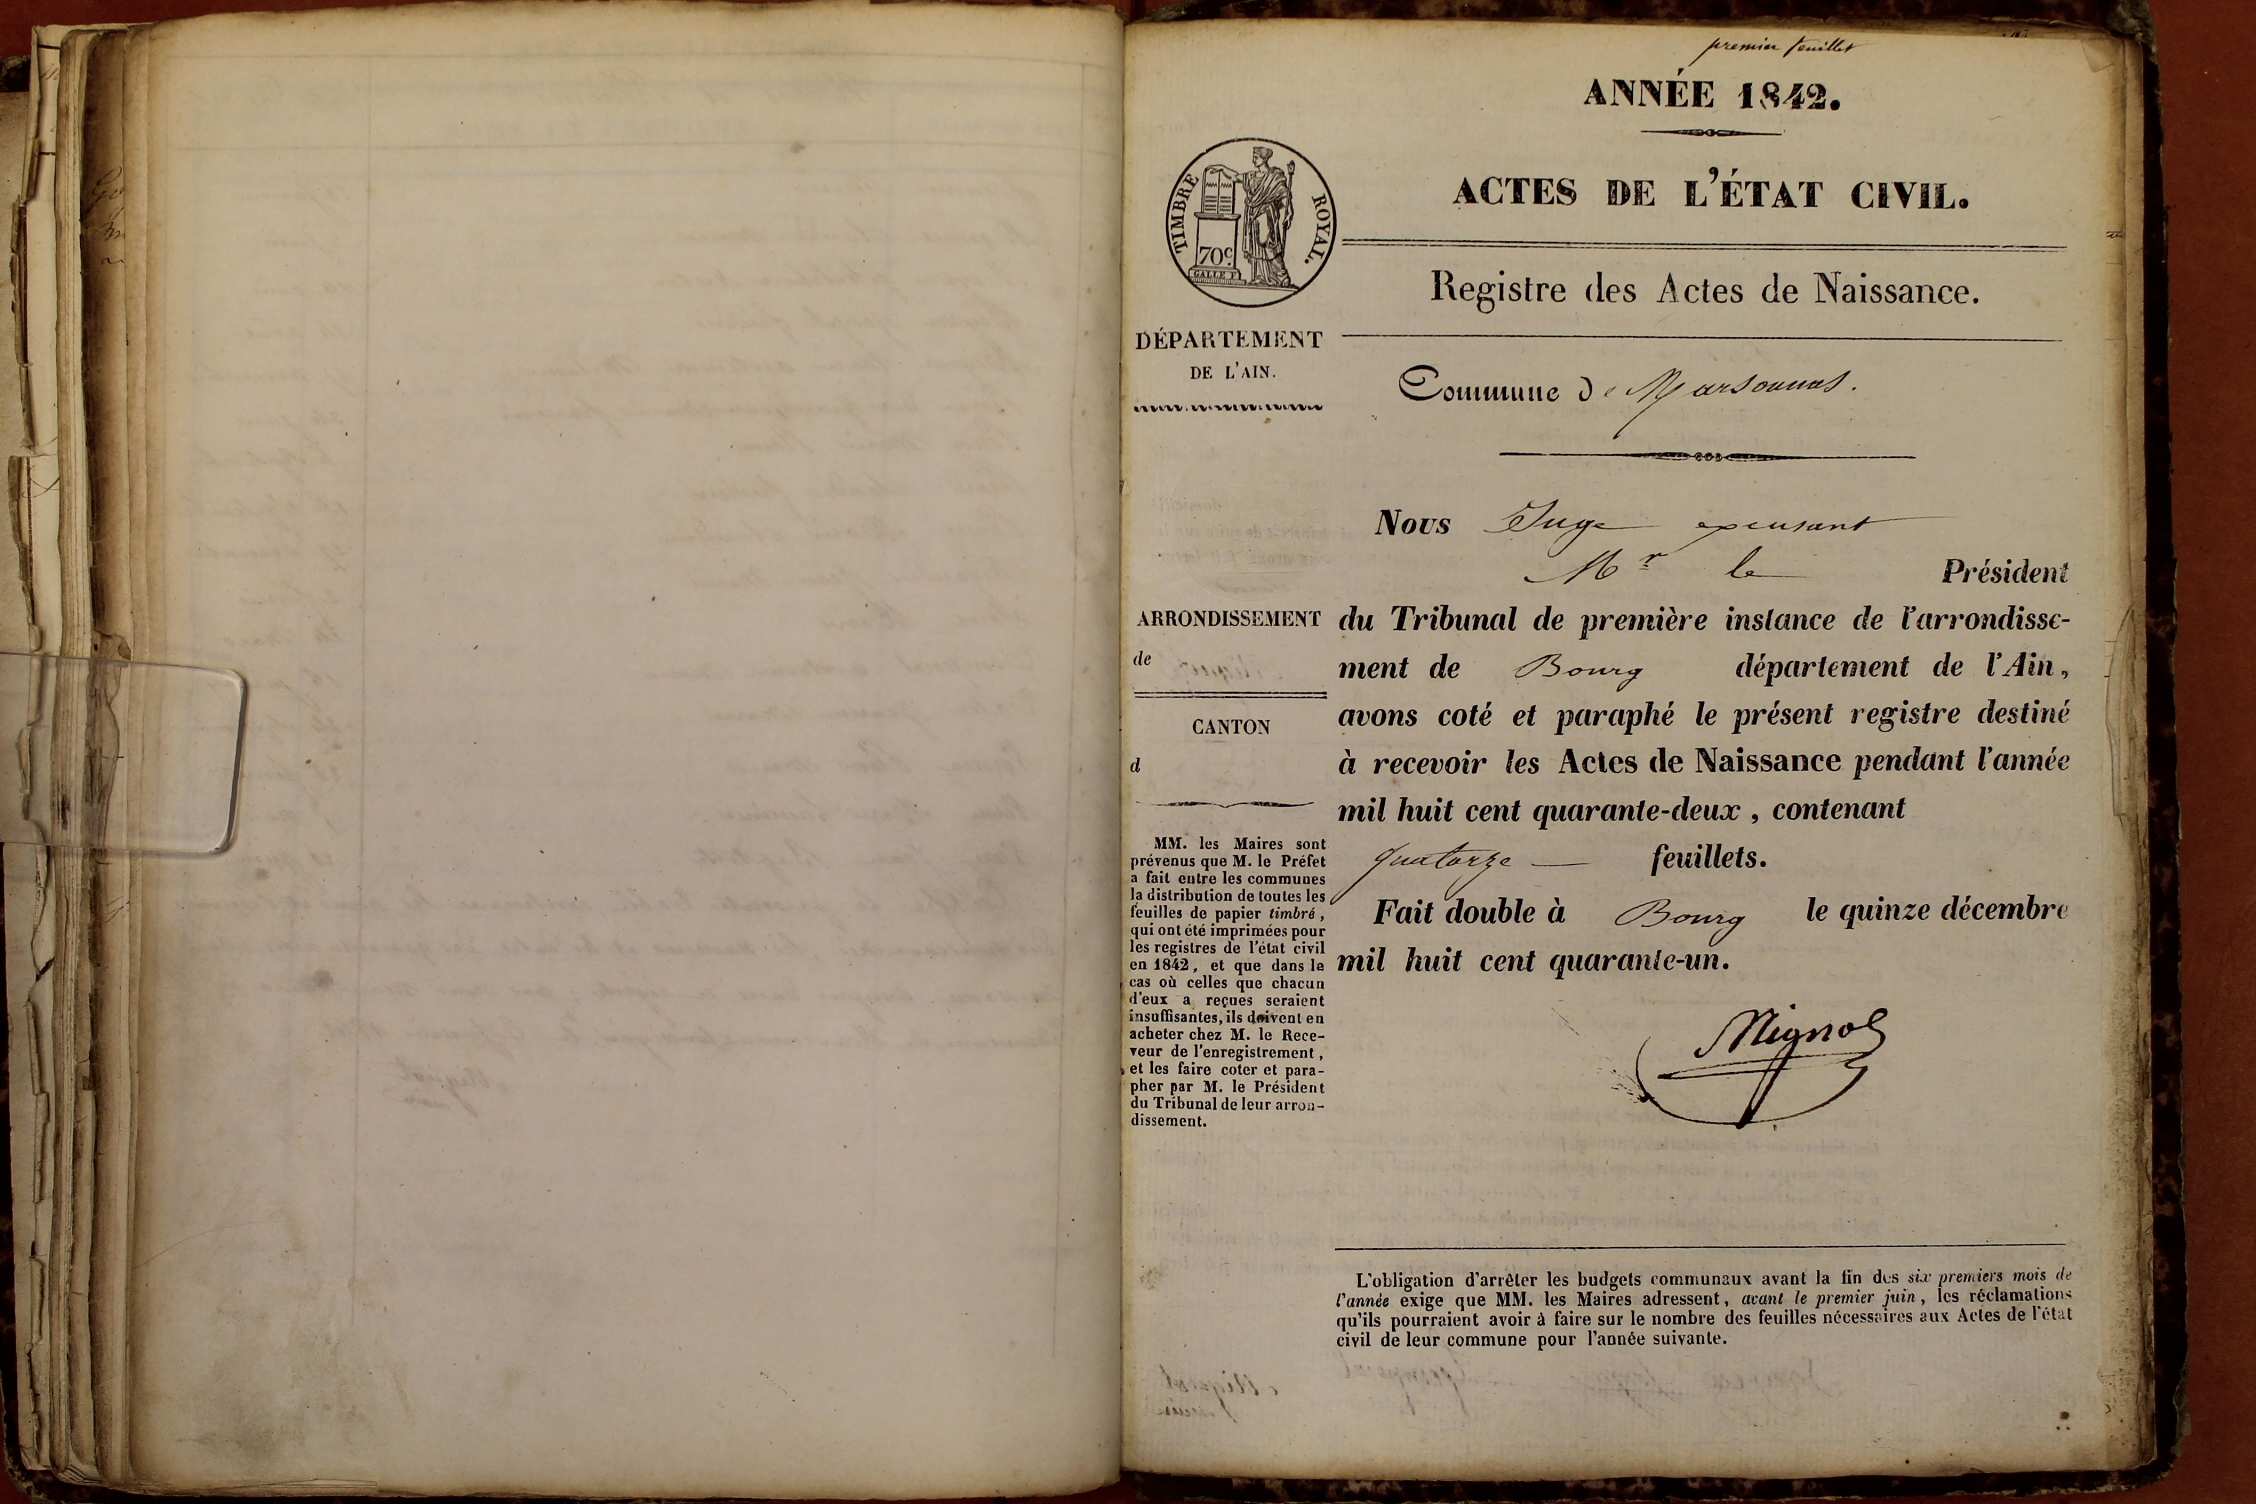 premier feuillet
ANNÉE 1842.
ACTES DE L'ÉTAT CIVIL.
TIMBRE ROYAL.
70c
GALLE F.
Registre des Actes de Naissance.
DÉPARTEMENT
DE L'AIN.
Commune de Marsonnas.
Nous Juge excusant
Mr le Président
du Tribunal de première instance de l'arrondisse-
ment de Bourg département de l'Ain,
avons coté et paraphé le présent registre destiné
à recevoir les Actes de Naissance pendant l'année
mil huit cent quarante-deux, contenant
quatorze feuillets.
Fait double à Bourg le quinze décembre
mil huit cent quarante-un.
Mignot
ARRONDISSEMENT
de
CANTON
d
MM. les Maires sont
prévenus que M. le Préfet
a fait entre les communes
la distribution de toutes les
feuilles de papier timbré,
qui ont été imprimées pour
les registres de l'état civil
en 1842, et que dans le
cas où celles que chacun
d'eux a reçues seraient
insuffisantes, ils doivent en
acheter chez M. le Rece-
veur de l'enregistrement,
et les faire coter et para-
pher par M. le Président
du Tribunal de leur arron-
dissement.
L'obligation d'arrêter les budgets communaux avant la fin des six premiers mois de
l'année exige que MM. les Maires adressent, avant le premier juin, les réclamations
qu'ils pourraient avoir à faire sur le nombre des feuilles nécessaires aux Actes de l'état
civil de leur commune pour l'année suivante.